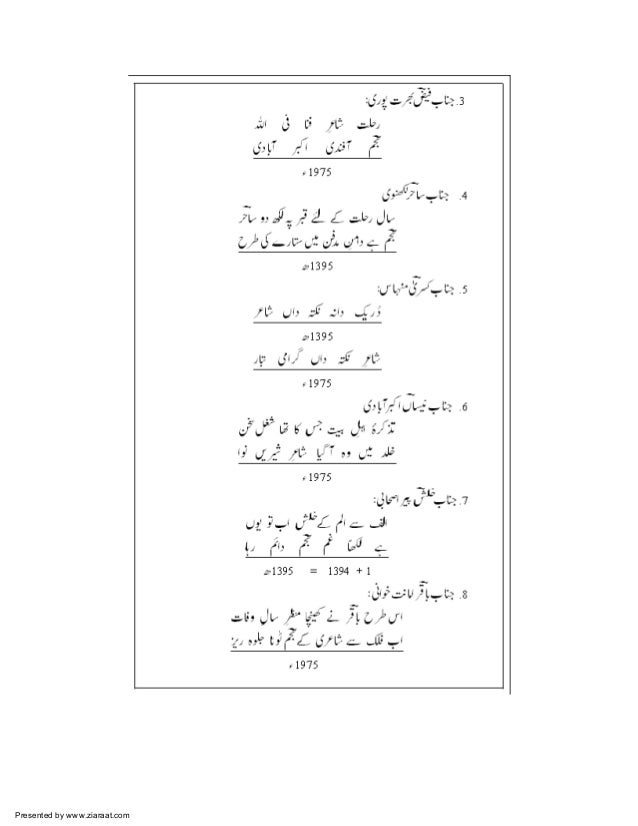 3. جناب فیضؔ بھرت پوری:
رحلت شاعر فنا فی اللہ
نجمؔ آفندی اکبر آبادی
1975ء
4. جناب ساحرؔ لکھنوی
سال رحلت کے لئے قبر پہ لکھ دو ساحرؔ
نجمؔ ہے دامن مدفن میں ستارے کی طرح
1395ھ
5. جناب کسریٰؔ منہاس:
دُر یک دانہ نکتہ داں شاعر
1395ھ
شاعر نکتہ داں گرامی تبار
1975ء
6. جناب نیساںؔ اکبر آبادی
تذکرۂ اہل بیت جس کا تھا شغل سخن
خلد میں وہ آگیا شاعر شیریں نوا
1975ء
7. جناب خلشؔ پیر اصحابی:
الف سے الم کے خلش اب تو یوں
ہے لکھنا غم نجم دائم رہا
1395ھ = 1394 + 1
8. جناب باقرؔ امانت خوانی:
اس طرح باقرؔ نے کھینچا منظر سال وفات
اب فلک سے شاعری کے نجم ٹوٹا جلوہ ریز
1975ء
Presented by www.ziaraat.com